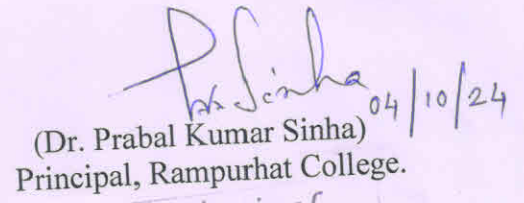 Pr. Sinha 04/10/24
(Dr. Prabal Kumar Sinha)
Principal, Rampurhat College.